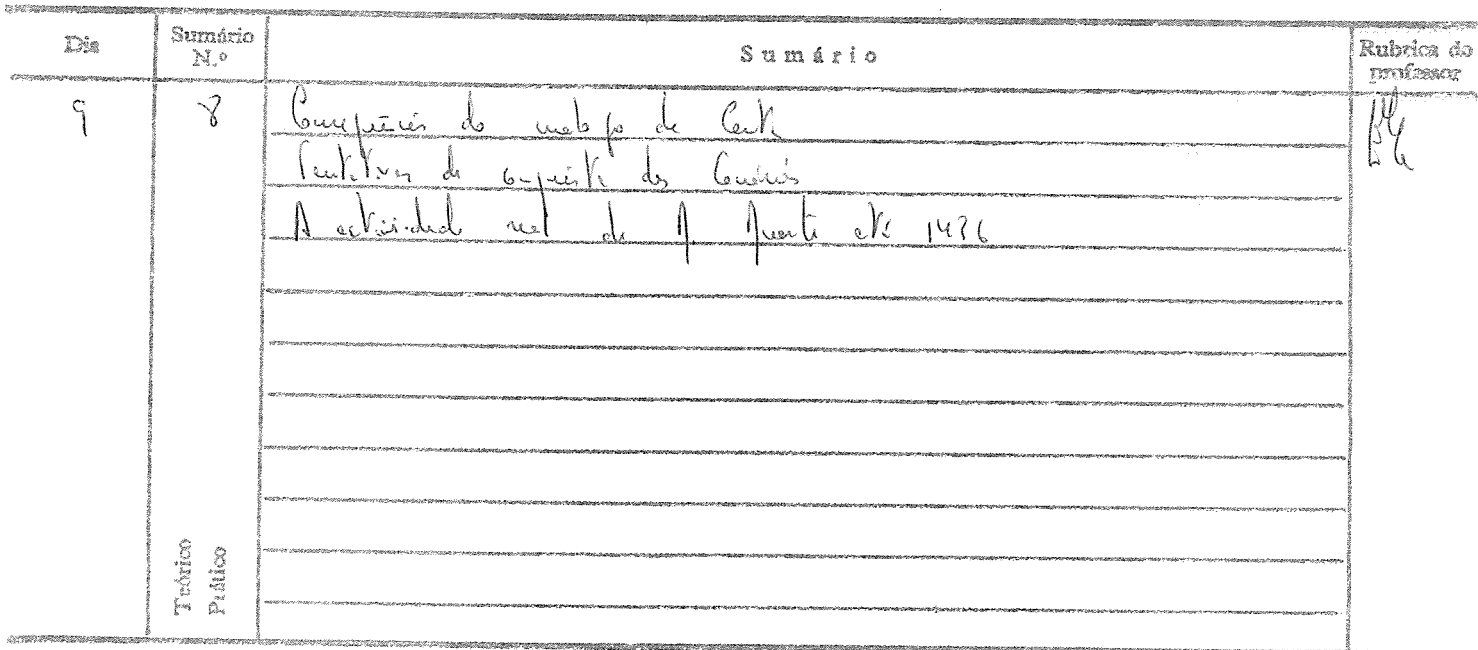 Dia
Sumário N.º
Sumário
Rubrica do professor
9
8
Consequências do de Ceuta
Tentativas de conquista das Canárias
A actividade de até 1436
Teórico
Prático